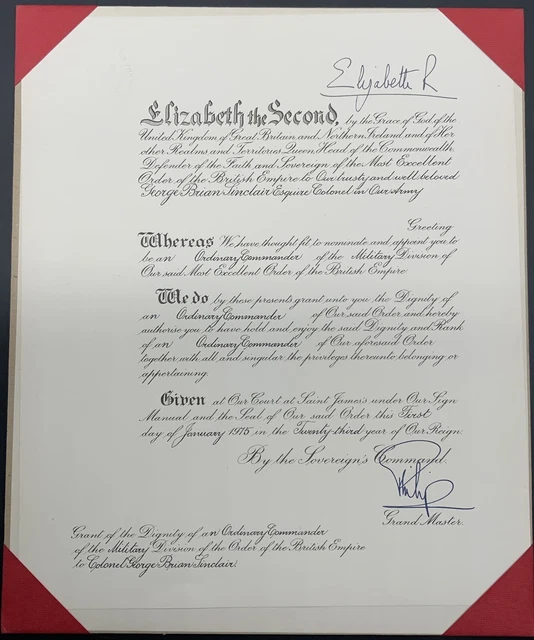 Elizabeth R
Elizabeth the Second, by the Grace of God of the
United Kingdom of Great Britain and Northern Ireland and of Her
other Realms and Territories Queen, Head of the Commonwealth,
Defender of the Faith and Sovereign of the Most Excellent
Order of the British Empire to Our trusty and well beloved
George Brian Sinclair Esquire Colonel in Our Army
Greeting
Whereas We have thought fit to nominate and appoint you to
be an Ordinary Commander of the Military Division of
Our said Most Excellent Order of the British Empire
We do by these presents grant unto you the Dignity of
an Ordinary Commander of Our said Order and hereby
authorise you to have hold and enjoy the said Dignity and Rank
of an Ordinary Commander of Our aforesaid Order
together with all and singular the privileges thereunto belonging or
appertaining.
Given at Our Court at Saint James's under Our Sign
Manual and the Seal of Our said Order this First
day of January 1975 in the Twenty-third year of Our Reign.
By the Sovereign's Command.
Philip
Grand Master.
Grant of the Dignity of an Ordinary Commander
of the Military Division of the Order of the British Empire
to Colonel George Brian Sinclair.